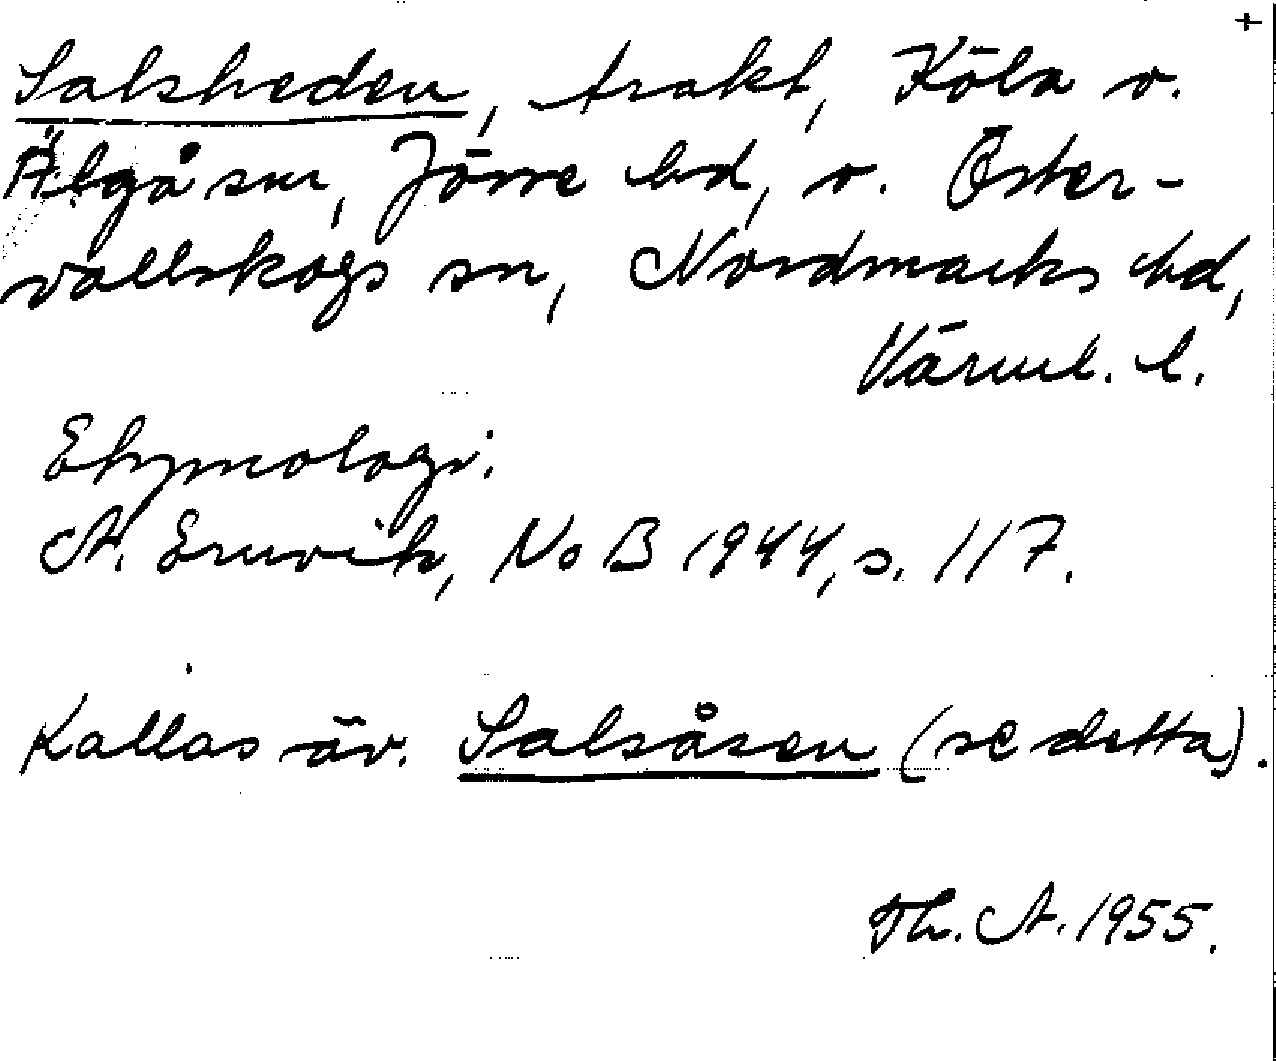 +
Salsheden, trakt, Köla o.
Älgå snr, Jösse hd, o. Öster-
vallskogs sn, Nordmarks hd,
Värml. l.
Etymologi:
A. Ernvik, NoB 1944, s. 117.
Kallas äv. Salsåsen (se detta).
Th. A. 1955.